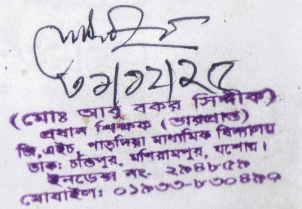 ৩১/১২/২৫
(মোঃ আবু বকর সিদ্দীক)
প্রধান শিক্ষক (ভারপ্রাপ্ত)
জি,এইচ, পাড়দিয়া মাধ্যমিক বিদ্যালয়
ডাক: চন্ডিপুর, মনিরামপুর, যশোর।
ইনডেক্স নং- ২৯৪৮৫৯
মোবাইল: ০১৯৩৩-৮৩০৪৯০